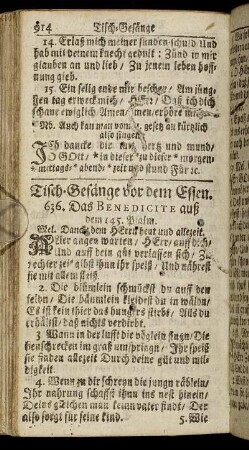 914 Tisch-Gesänge
14. Erlaß mich meiner sünden-schuld Und
hab mit deinem knecht gedult: Zünd in mir
glauben an und lieb/ Zu jenem leben hoff-
nung gieb.
15. Ein selig ende mir bescher/ Am jüng-
sten tag erweck mich/ HErr/ Daß ich dich
schaue ewiglich Amen/ amen erhöre mich.
NB. Auch kan man vom gesetz an kürtzlich
also singen:
Ich dancke dir auß hertz und mund/
O GOtt/ * in dieser * zu dieser * morgen-
mittags- abend- zeit und stund Für ic.
Tisch-Gesänge vor dem Essen.
636. Das BENEDICITE auß
dem 145. Psalm.
Mel. Danckt dem HErrn heut und allezeit.
Aller augen warten/ HErr/ auff dich/
Und auff dein güt verlassen sich/ Zu
rechter zeit gibst ihnn ihr speiß/ Und nährest
sie mit allem fleiß.
2. Die blümlein schmückst du auff den
felden/ Die bäumlein kleidest du in wälden/
Es ist kein thier das hungers sterbs/ Alls du
erhältst/ daß nichts verdirbt.
3. Wann in der lufft die vöglein singn/ Die
heuschrecken im graß umspringn/ Ihr speiß
sie finden allezeit Durch deine güt und mil-
digkeit.
4. Wenn zu dir schreyn die jungn räblein/
Ihr nahrung schaffst ihnn ins nest hinein/
Deins gleichen man kenn vater findt/ Der
also sorgt für seine kind.
5. Wie